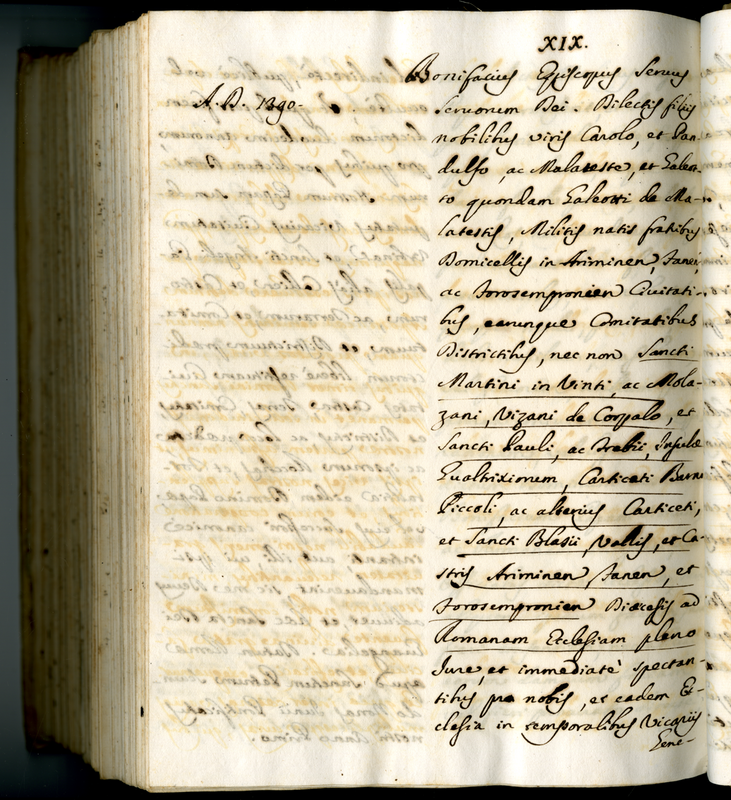 XIX.
A. D. 1390.
Bonifacius Episcopus Servus
Servorum Dei. Dilectis filijs
nobilibus viris Carolo, et Pan-
dulfo, ac Malateste, et Galeot-
to quondam Galeotti de Ma-
latestis, Militis natis fratribus
Domicellis in Ariminen, Fanen,
ac Forosempronien Civitati-
bus, earunque Comitatibus
Districtibus, nec non Sancti
Martini in Vinti, ac Mola-
zani, Vizani de Corpalo, et
Sancti Pauli, ac Trebii, Insulæ
Gualtrixionum, Carticeti Barne
Piccoli, ac alterius Carticeti,
et Sancti Blasii, Vallis, et Ca-
stris Ariminen, Fanen, et
Forosempronien Diæcesis ad
Romanam Ecclesiam pleno
Jure, et immediatè spectan-
tibus pro nobis, et eadem Ec-
clesia in temporalibus Vicarijs
Gene-